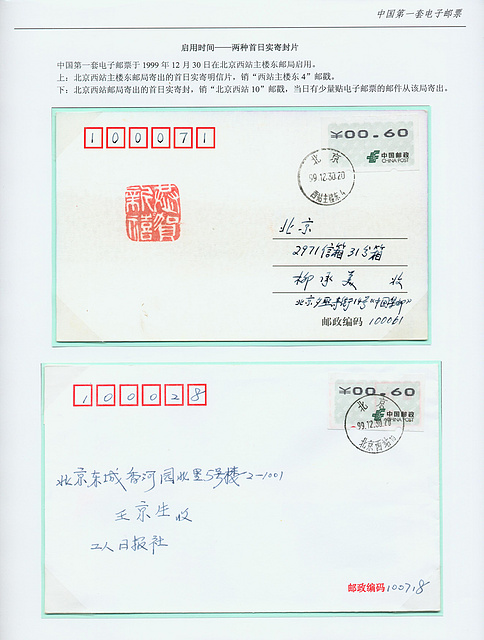 中国第一套电子邮票
启用时间——两种首日实寄封片
中国第一套电子邮票于 1999 年 12 月 30 日在北京西站主楼东邮局启用。
上：北京西站主楼东邮局寄出的首日实寄明信片，销“西站主楼东 4”邮戳。
下：北京西站邮局寄出的首日实寄封，销“北京西站 10”邮戳，当日有少量贴电子邮票的邮件从该局寄出。
100071
¥00.60
中国邮政
CHINA POST
北京
99.12.30.20
西站主楼东 4
恭贺新禧
北京
2971信箱31分箱
柳承美 收
邮政编码 100061
100028
¥00.60
中国邮政
CHINA POST
北京
99.12.30.20
北京西站10
北京东城香河园水里5号楼-2-1001
王京生 收
工人日报社
邮政编码 100718